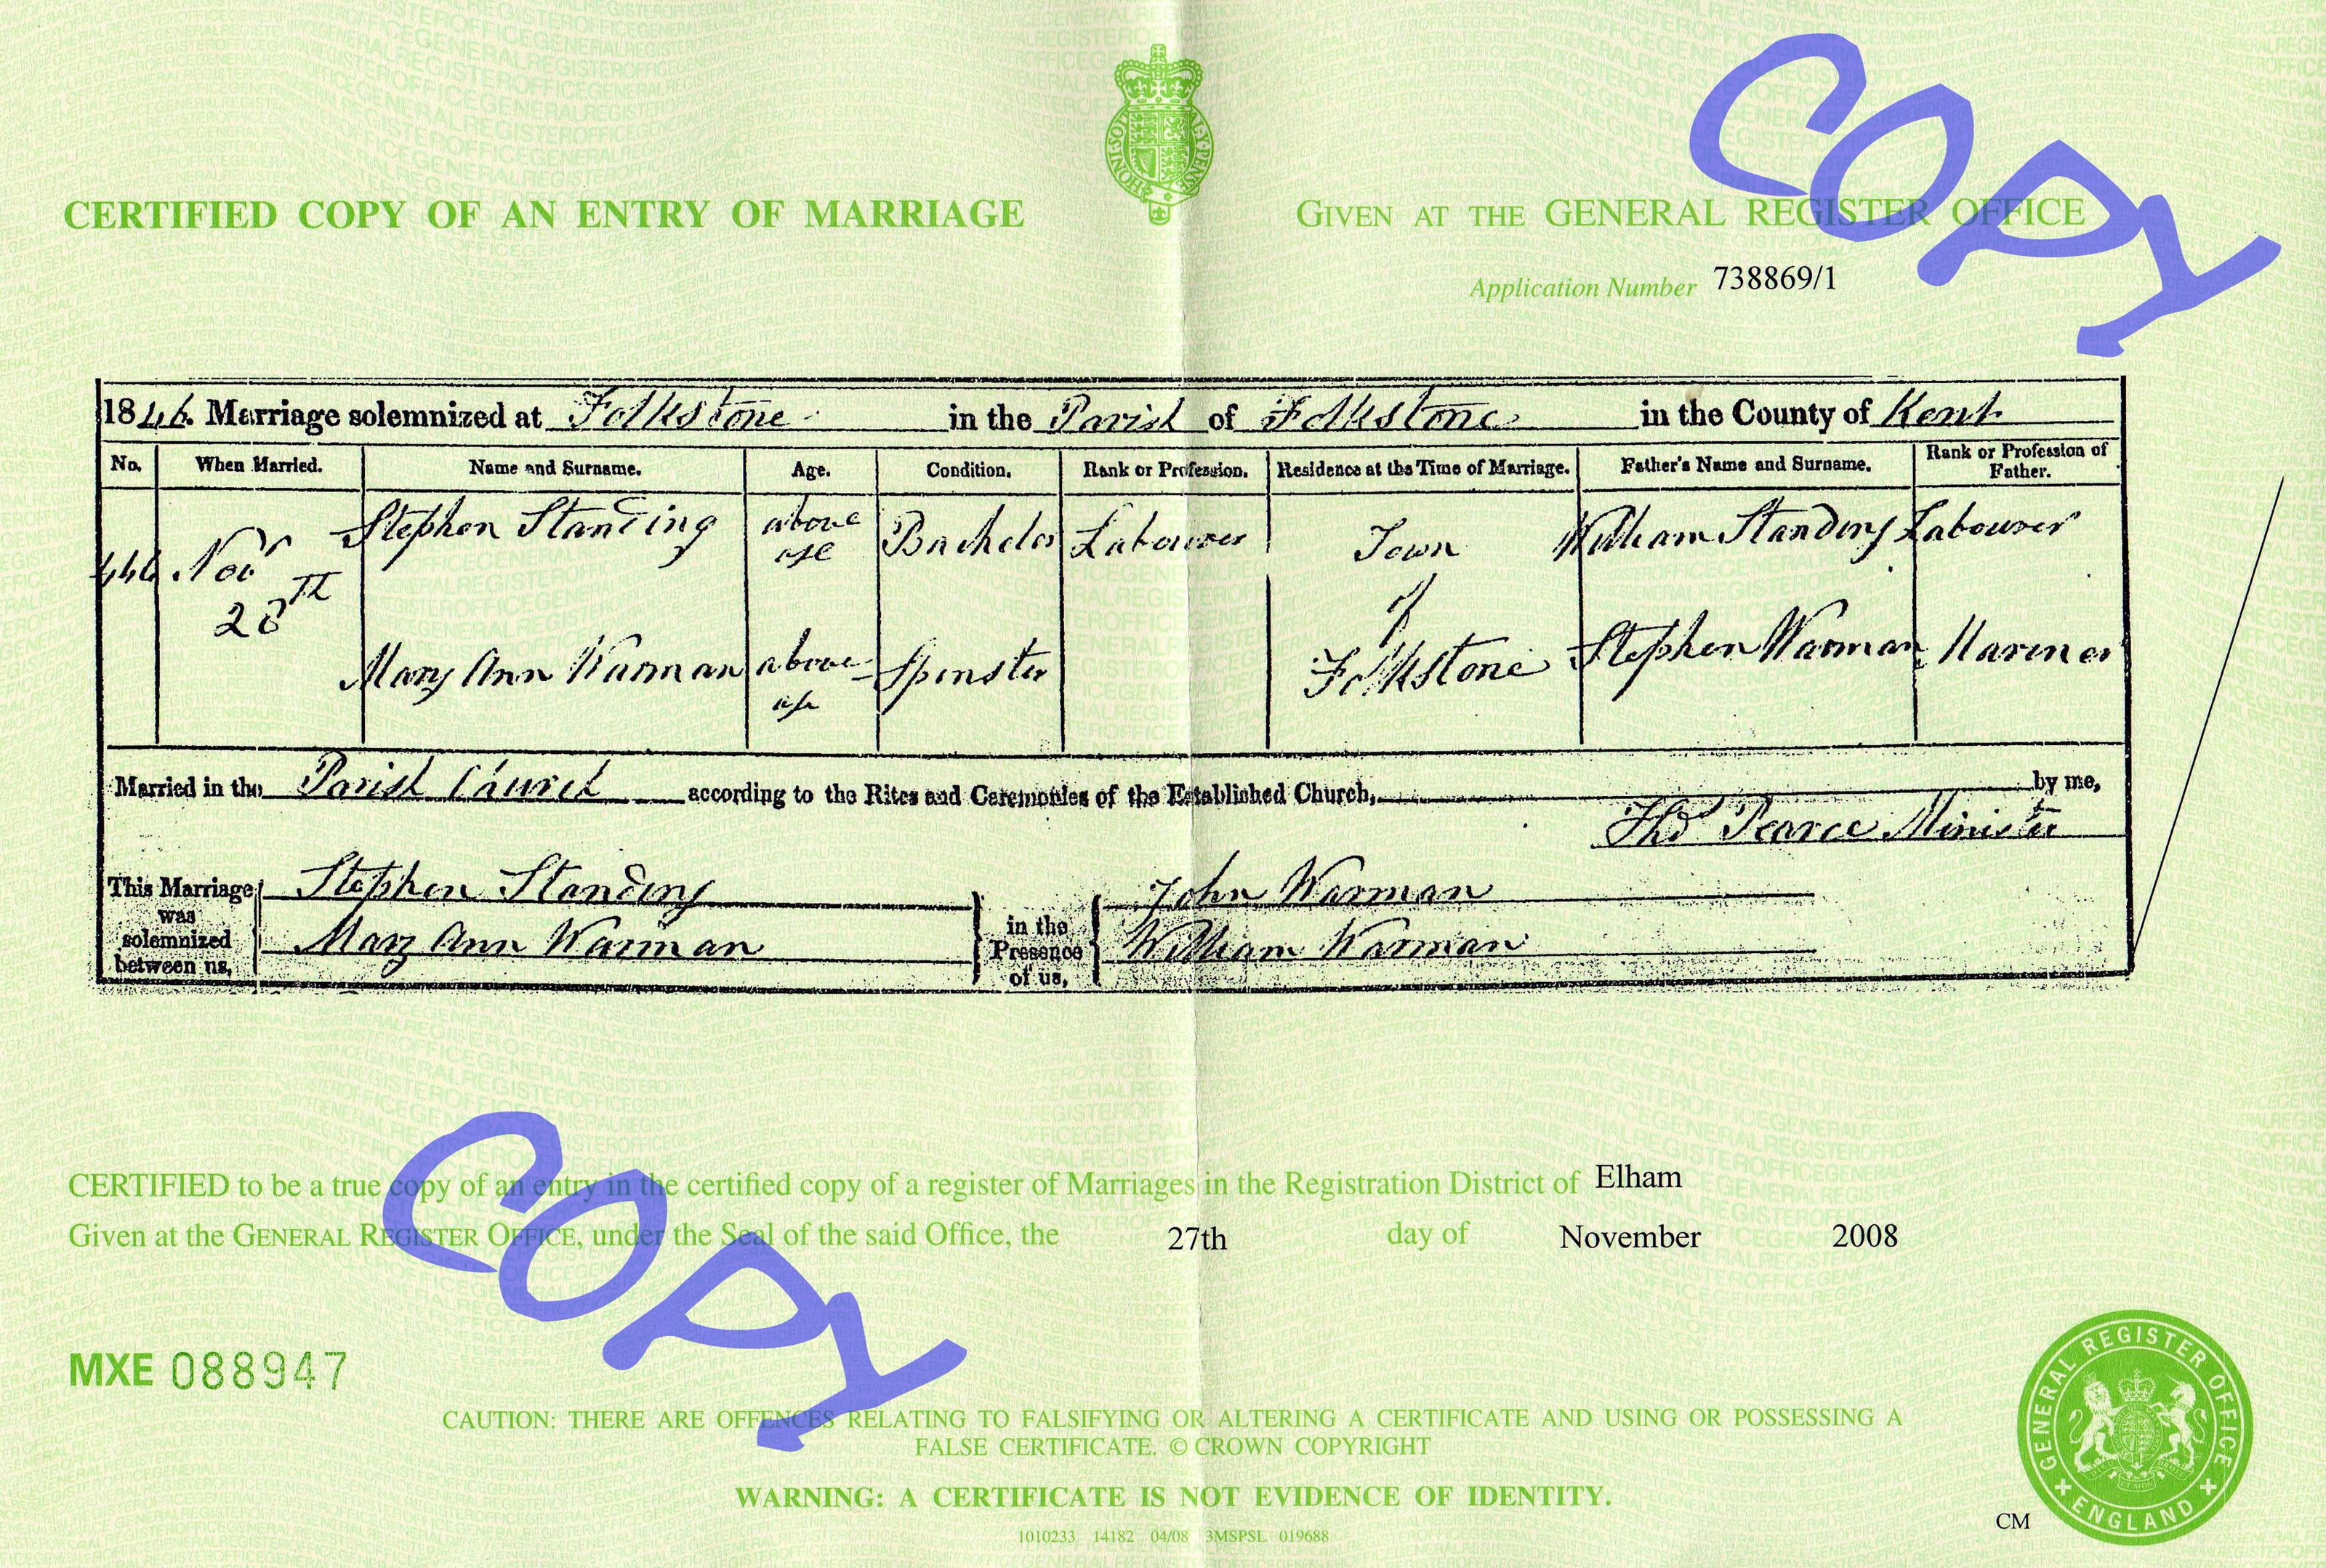 COPY
CERTIFIED COPY OF AN ENTRY OF MARRIAGE
GIVEN AT THE GENERAL REGISTER OFFICE
Application Number 738869/1
1846. Marriage solemnized at Folkstone in the Parish of Folkstone in the County of Kent
No. When Married. Name and Surname. Age. Condition. Rank or Profession. Residence at the Time of Marriage. Father's Name and Surname. Rank or Profession of Father.
Stephen Standing above age Bachelor Labourer Town William Standing Labourer
Novr 28th of
Mary Ann Warman above age Spinster Folkstone Stephen Warman Mariner
Married in the Parish Church according to the Rites and Ceremonies of the Established Church, by me,
Thos Pearce Minister
This Marriage was solemnized between us, Stephen Standing in the Presence of us, John Warman
Mary Ann Warman William Warman
CERTIFIED to be a true copy of an entry in the certified copy of a register of Marriages in the Registration District of Elham
Given at the GENERAL REGISTER OFFICE, under the Seal of the said Office, the 27th day of November 2008
COPY
MXE 088947
CAUTION: THERE ARE OFFENCES RELATING TO FALSIFYING OR ALTERING A CERTIFICATE AND USING OR POSSESSING A
FALSE CERTIFICATE. © CROWN COPYRIGHT
WARNING: A CERTIFICATE IS NOT EVIDENCE OF IDENTITY.
1010233 14182 04/08 3MSPSL 019688
CM
GENERAL REGISTER OFFICE
ENGLAND